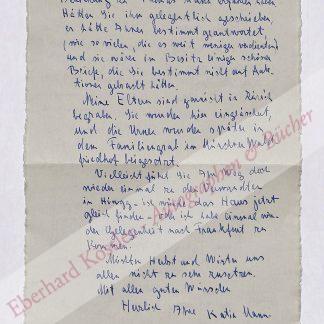 Hätten Sie ihm gelegentlich geschrieben,
er hätte Ihnen bestimmt geantwortet,
(wie so vielen, die es weit weniger verdienten)
und Sie wären im Besitz einiger schöner
Briefe, die Sie bestimmt nicht auf Auk-
tionen gebracht hätten.
Meine Eltern sind in Zürich
begraben. Sie wurden hier eingeäschert,
und die Urnen wurden später in
dem Familiengrab im Münchner Wald-
friedhof beigesetzt.
Vielleicht führt Sie Ihr Weg doch
wieder einmal zu den Verwandten
in Höngg
gleich finden - oder ich habe einmal wie-
der Gelegenheit nach Frankfurt zu
kommen.
Möchten Herbst und Winter uns
allen nicht zu sehr zusetzen.
Mit allen guten Wünschen
Herzlich Ihre Katia Mann.
Eberhard Köstler Autographen & Bücher